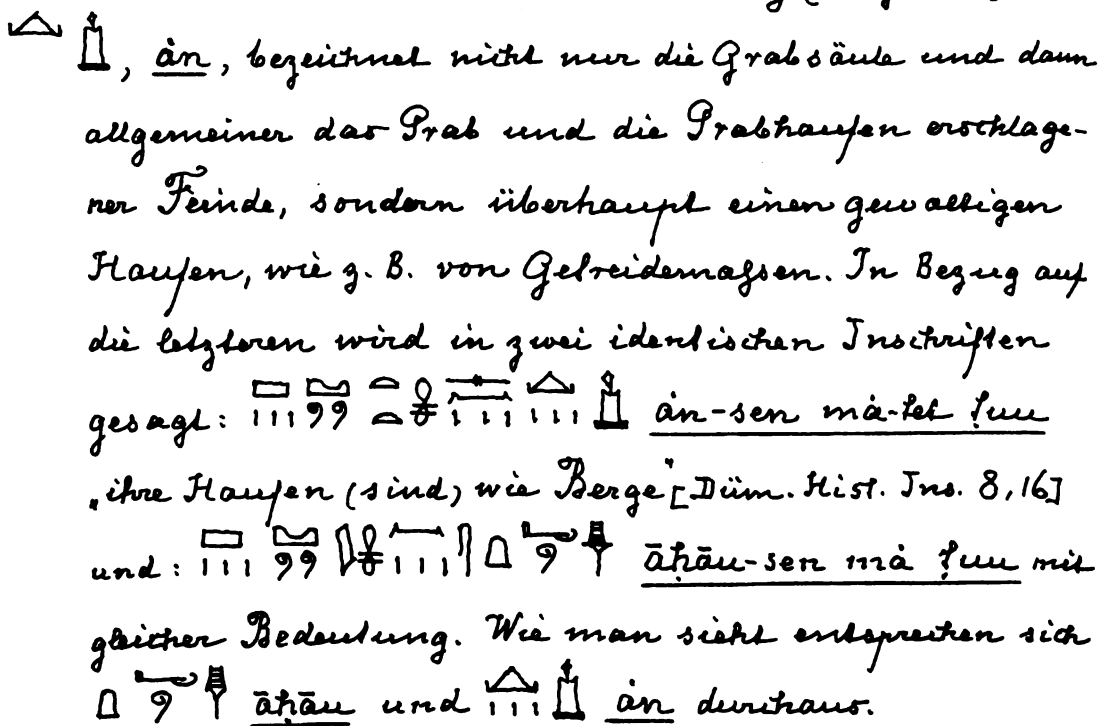 , ȧn, bezeichnet nicht nur die Grabsäule und dann
allgemeiner das Grab und die Grabhaufen erschlage-
ner Feinde, sondern überhaupt einen gewaltigen
Haufen, wie z. B. von Getreidemaſsen. In Bezug auf
die letzteren wird in zwei identischen Inschriften
gesagt: ȧn-sen mȧ-tet ṭuu
„ihre Haufen (sind) wie Berge" [Düm. Hist. Ins. 8,16]
und: āḥāu-sen mȧ ṭuu mit
gleicher Bedeutung. Wie man sieht entsprechen sich
āḥāu und ȧn durchaus.